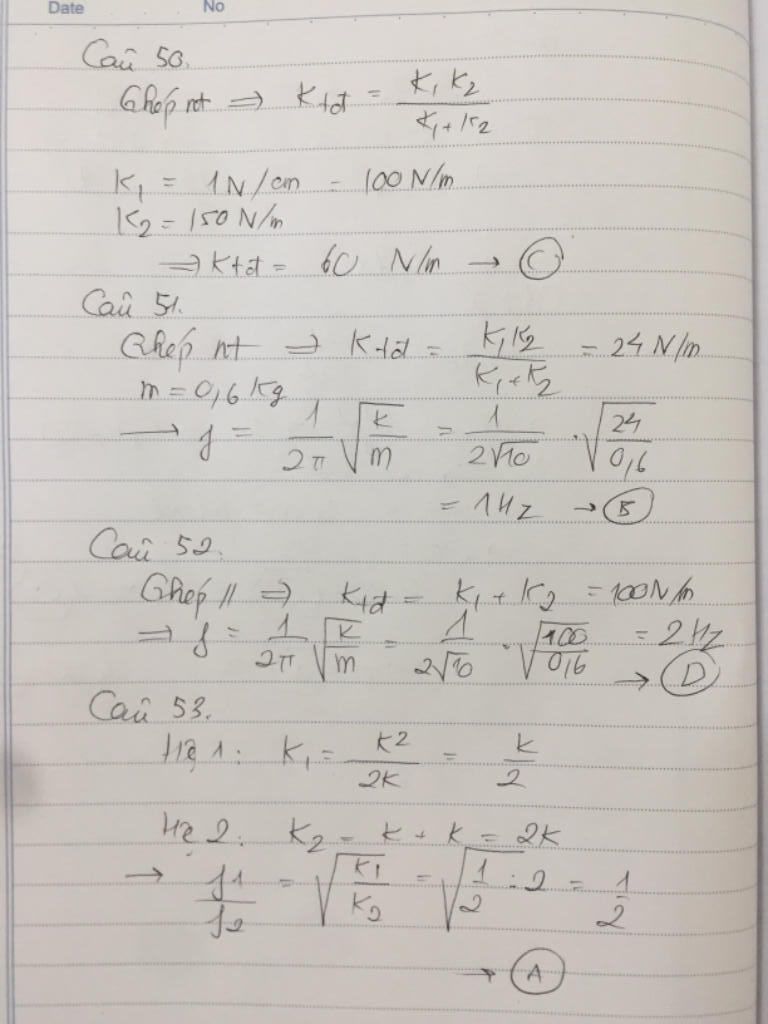 Date No
Câu 50.
Ghép nt ⟹ Ktđ = K₁K₂ / (K₁+K₂)
K₁ = 1N/cm = 100N/m
K₂ = 150 N/m
⟹ Ktđ = 60 N/m → C
Câu 51.
Ghép nt ⟹ Ktđ = K₁K₂ / (K₁+K₂) = 24 N/m
m = 0,6 Kg
⟶ f = 1/(2π) √(K/m) = 1/(2√10) · √(24/0,6)
= 1Hz → B
Câu 52.
Ghép // ⟹ Ktđ = K₁ + K₂ = 100N/m
⟹ f = 1/(2π) √(K/m) = 1/(2√10) · √(100/0,6) = 2Hz
→ D
Câu 53.
Hệ 1: K₁ = K²/(2K) = K/2
Hệ 2: K₂ = K + K = 2K
→ f1/f2 = √(K1/K2) = √(1/2 : 2) = 1/2
→ A